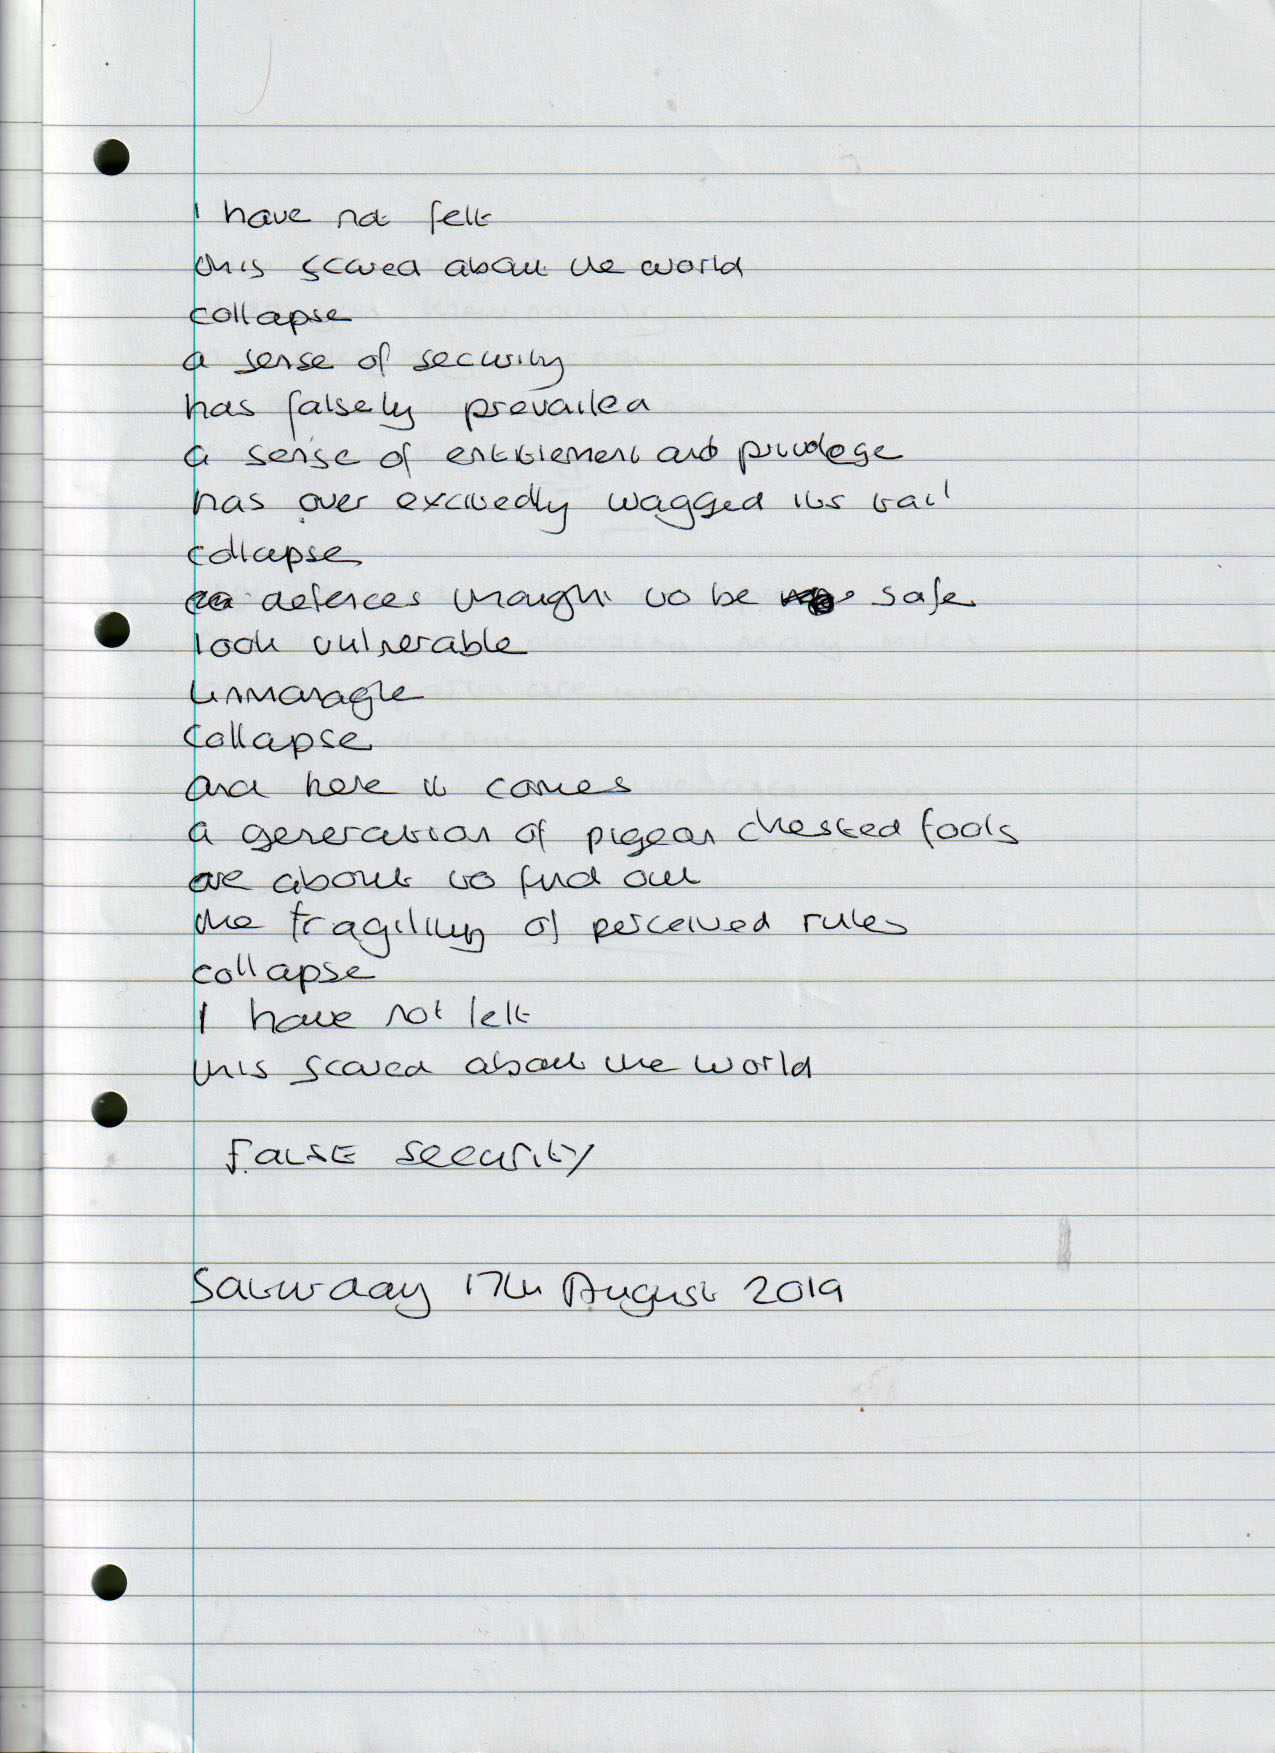 I have not felt
this scared about the world
collapse
a sense of security
has falsely prevailed
a sense of entitlement and privilege
has over excitedly wagged its tail
collapse
defences thought to be safe
look vulnerable
unmanagle
collapse
and here it comes
a generation of pigeon chested fools
are about to find out
the fragility of perceived rules
collapse
I have not felt
this scared about the world
FALSE SECURITY
Saturday 17th August 2019